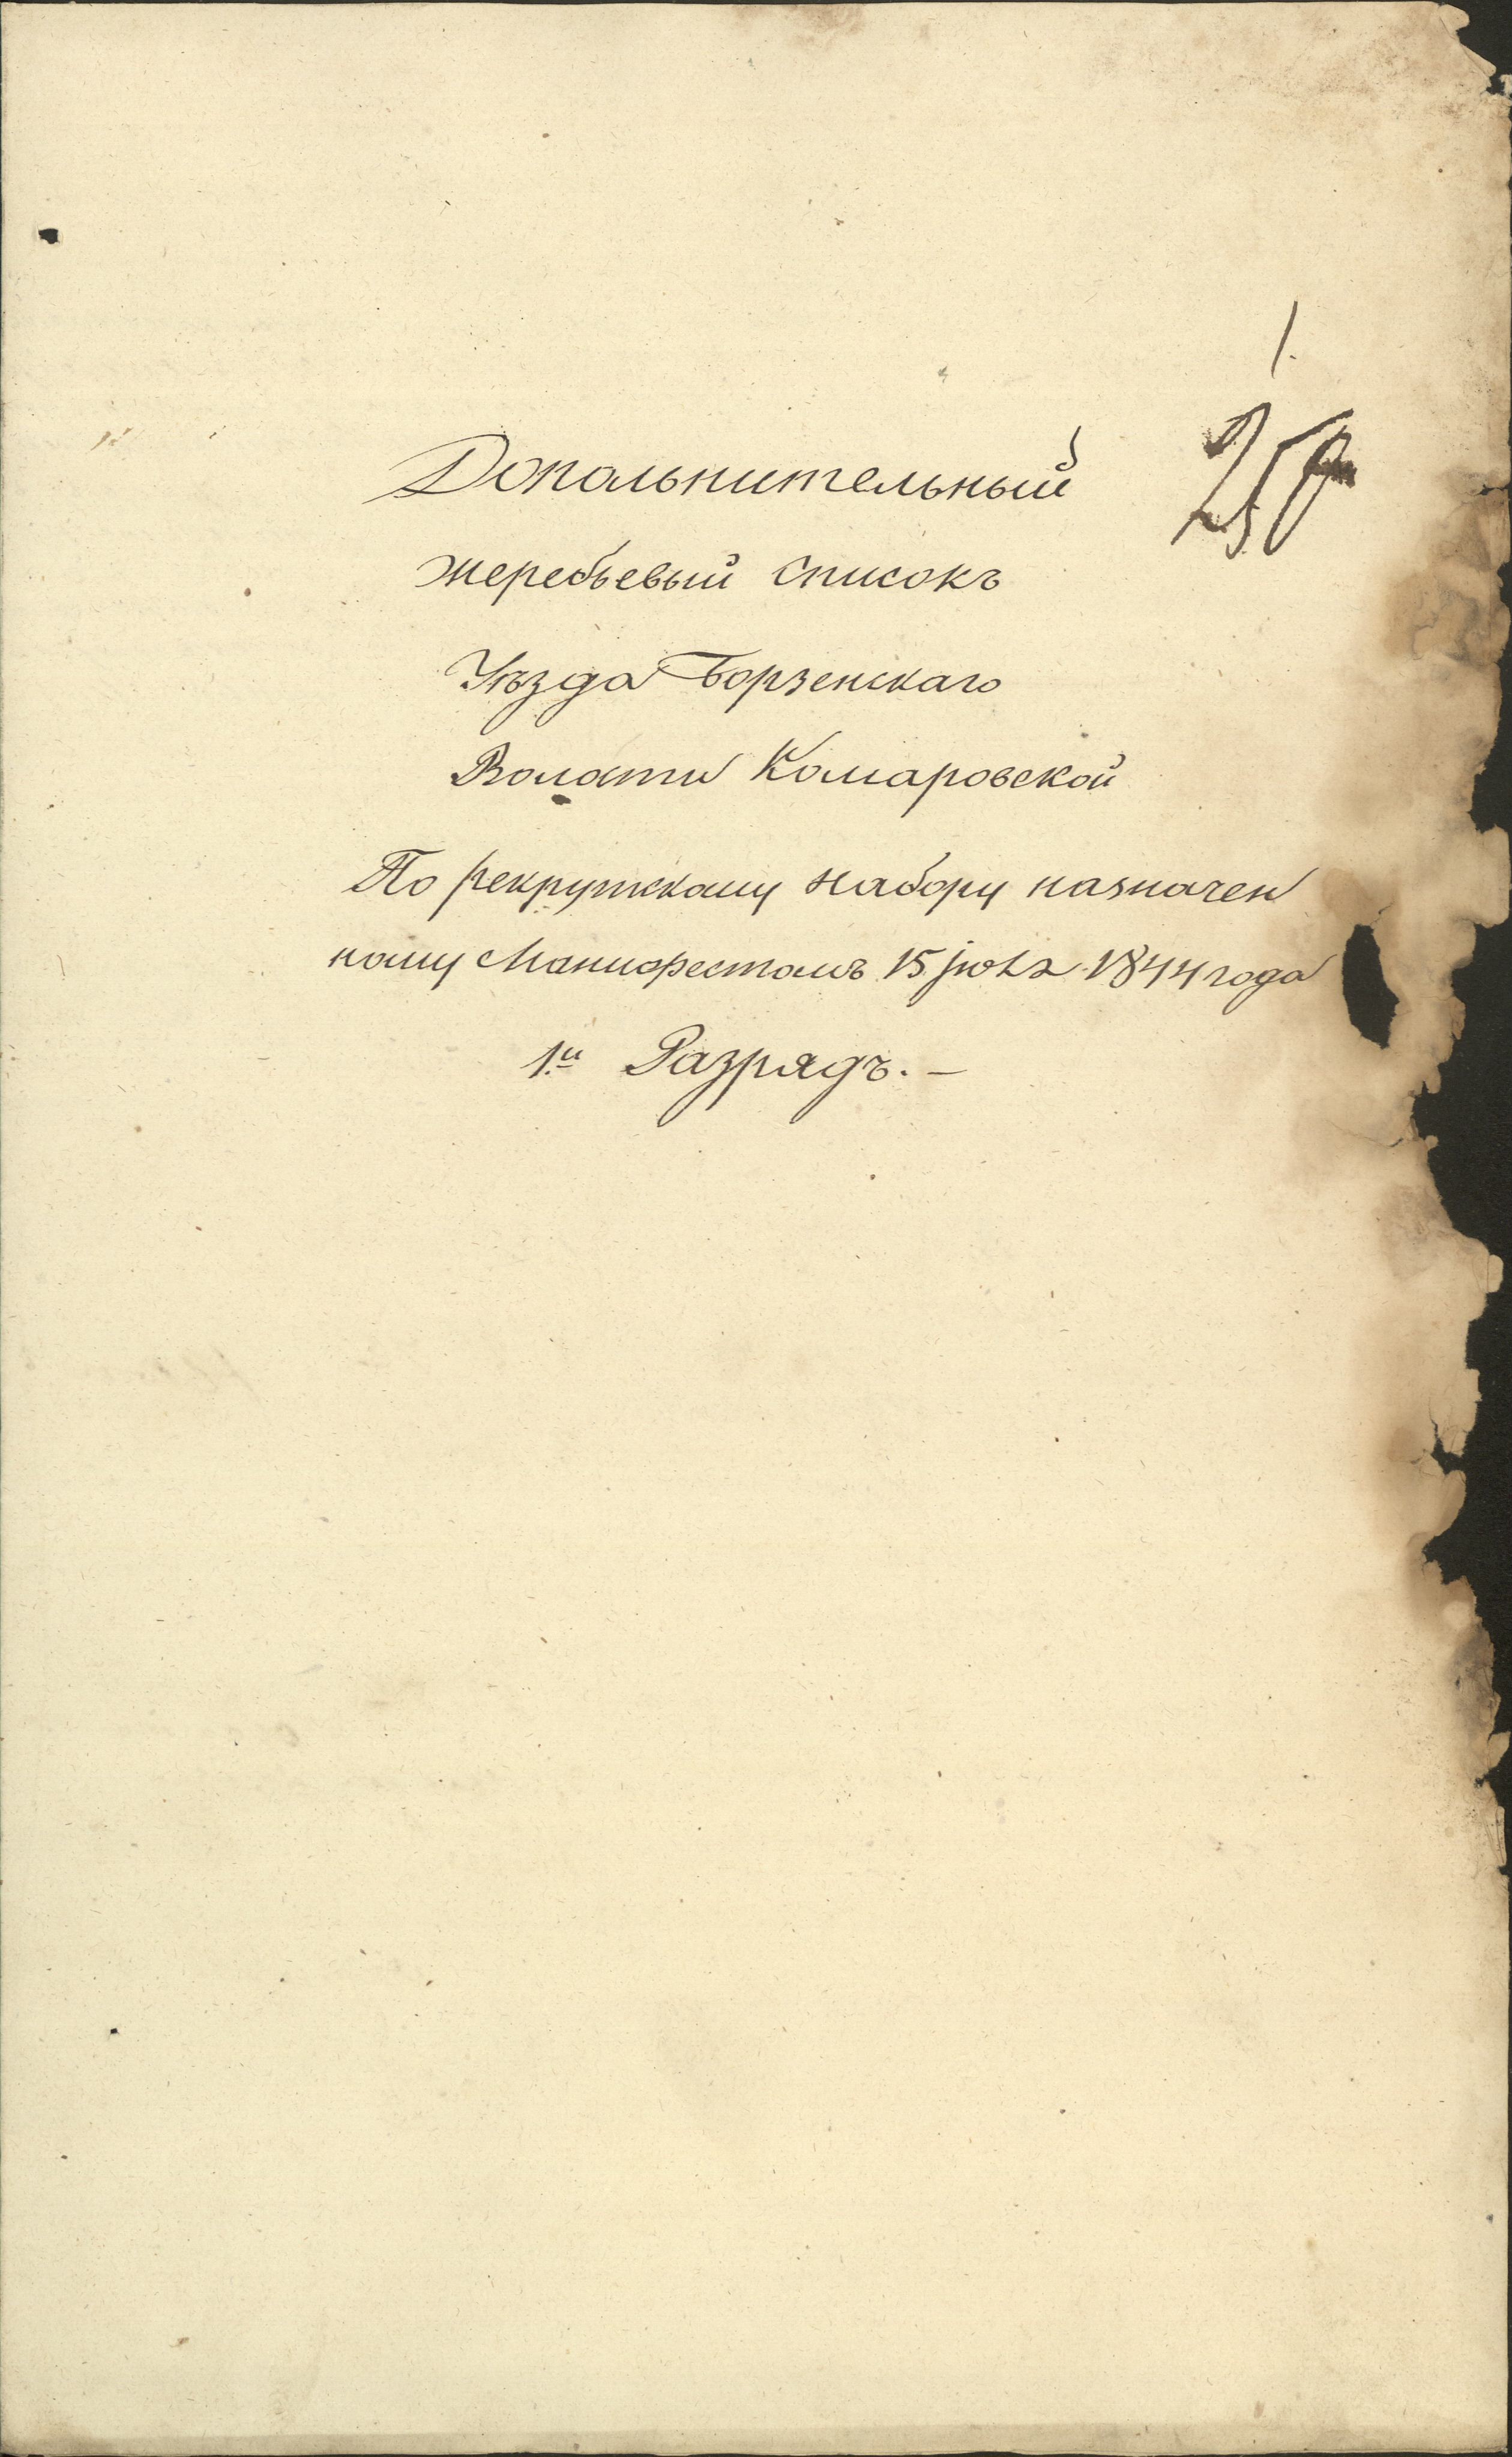 1.
250
Допольнительный
жеребьевый списокъ
Уѣзда Борзенскаго
Волости Комаровской
По рекрутскому набору назначен
ному Манифестомъ 15 јюля 1844 года
1.й Разрядъ. —